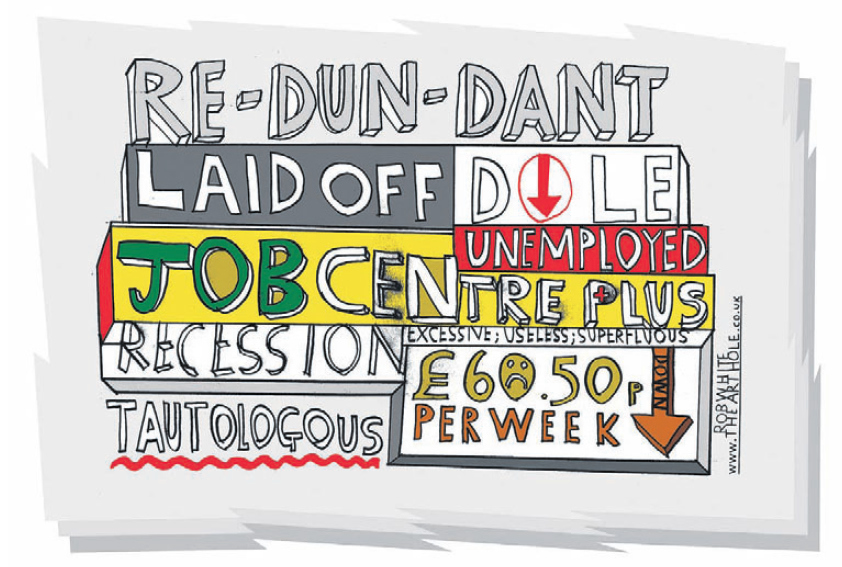 RE-DUN-DANT
LAID OFF
DOLE
UNEMPLOYED
JOBCENTRE PLUS
RECESSION
EXCESSIVE; USELESS; SUPERFLUOUS
£60.50p
PER WEEK
DOWN
TAUTOLOGOUS
ROB WHITE
www.THEARTHOLE.co.uk